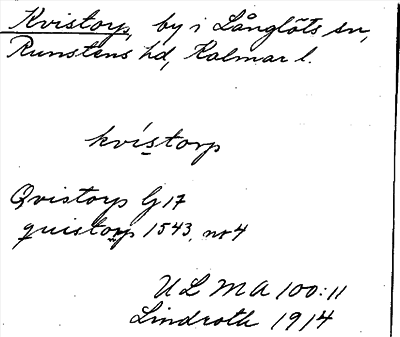 Kvistorp, by i Långlöts sn,
Runstens hd, Kalmar l.
kvístorp
Qvistorp G 17
quistorp 1543, nr 4
U L M A 100:11
Lindroth 1914